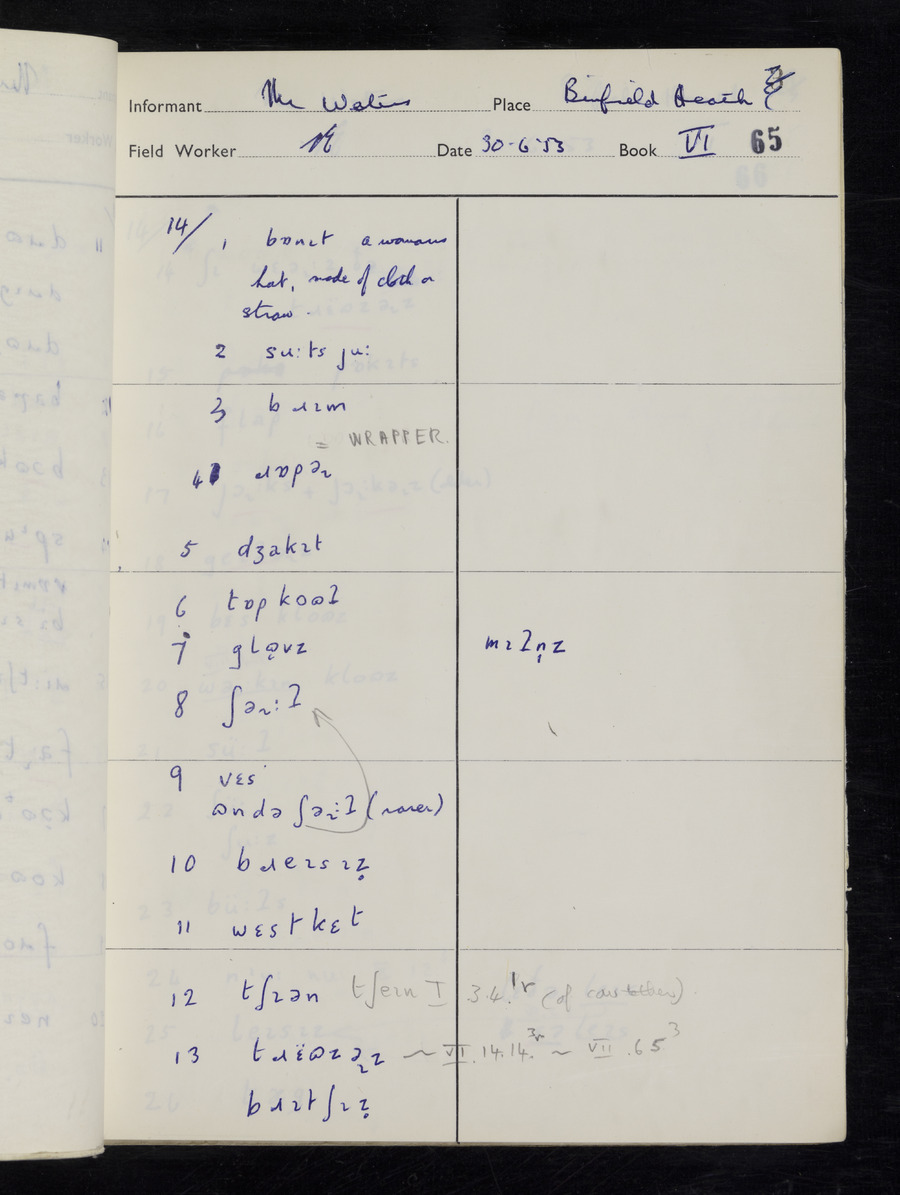 Informant Mr Waters Place Binfield Heath
Field Worker Date 30-6-53 Book VI 65
14/ 1 bɒnɪt a womans
hat, made of cloth or
straw.
2 su:ts ju:
3 bɹɪm
= WRAPPER.
4 ɹapəɹ
5 dʒakɪt
6 tɒpkoʊɫ
7 glə̣vz mɪɫṇz
8 ʃəɹ:ɫ
9 vɛs
ɒndə ʃəɹ:ɫ (rarer)
10 bɹeɪsɪẓ
11 wɛstkɛt
12 tʃɪən tʃeɪn I 3.4.1r (of cow-tether).
13 tɹɛ̈ʊzəɹz ~ VI.14.14.3r ~ VII.65 3
bɹɪtʃɪẓ